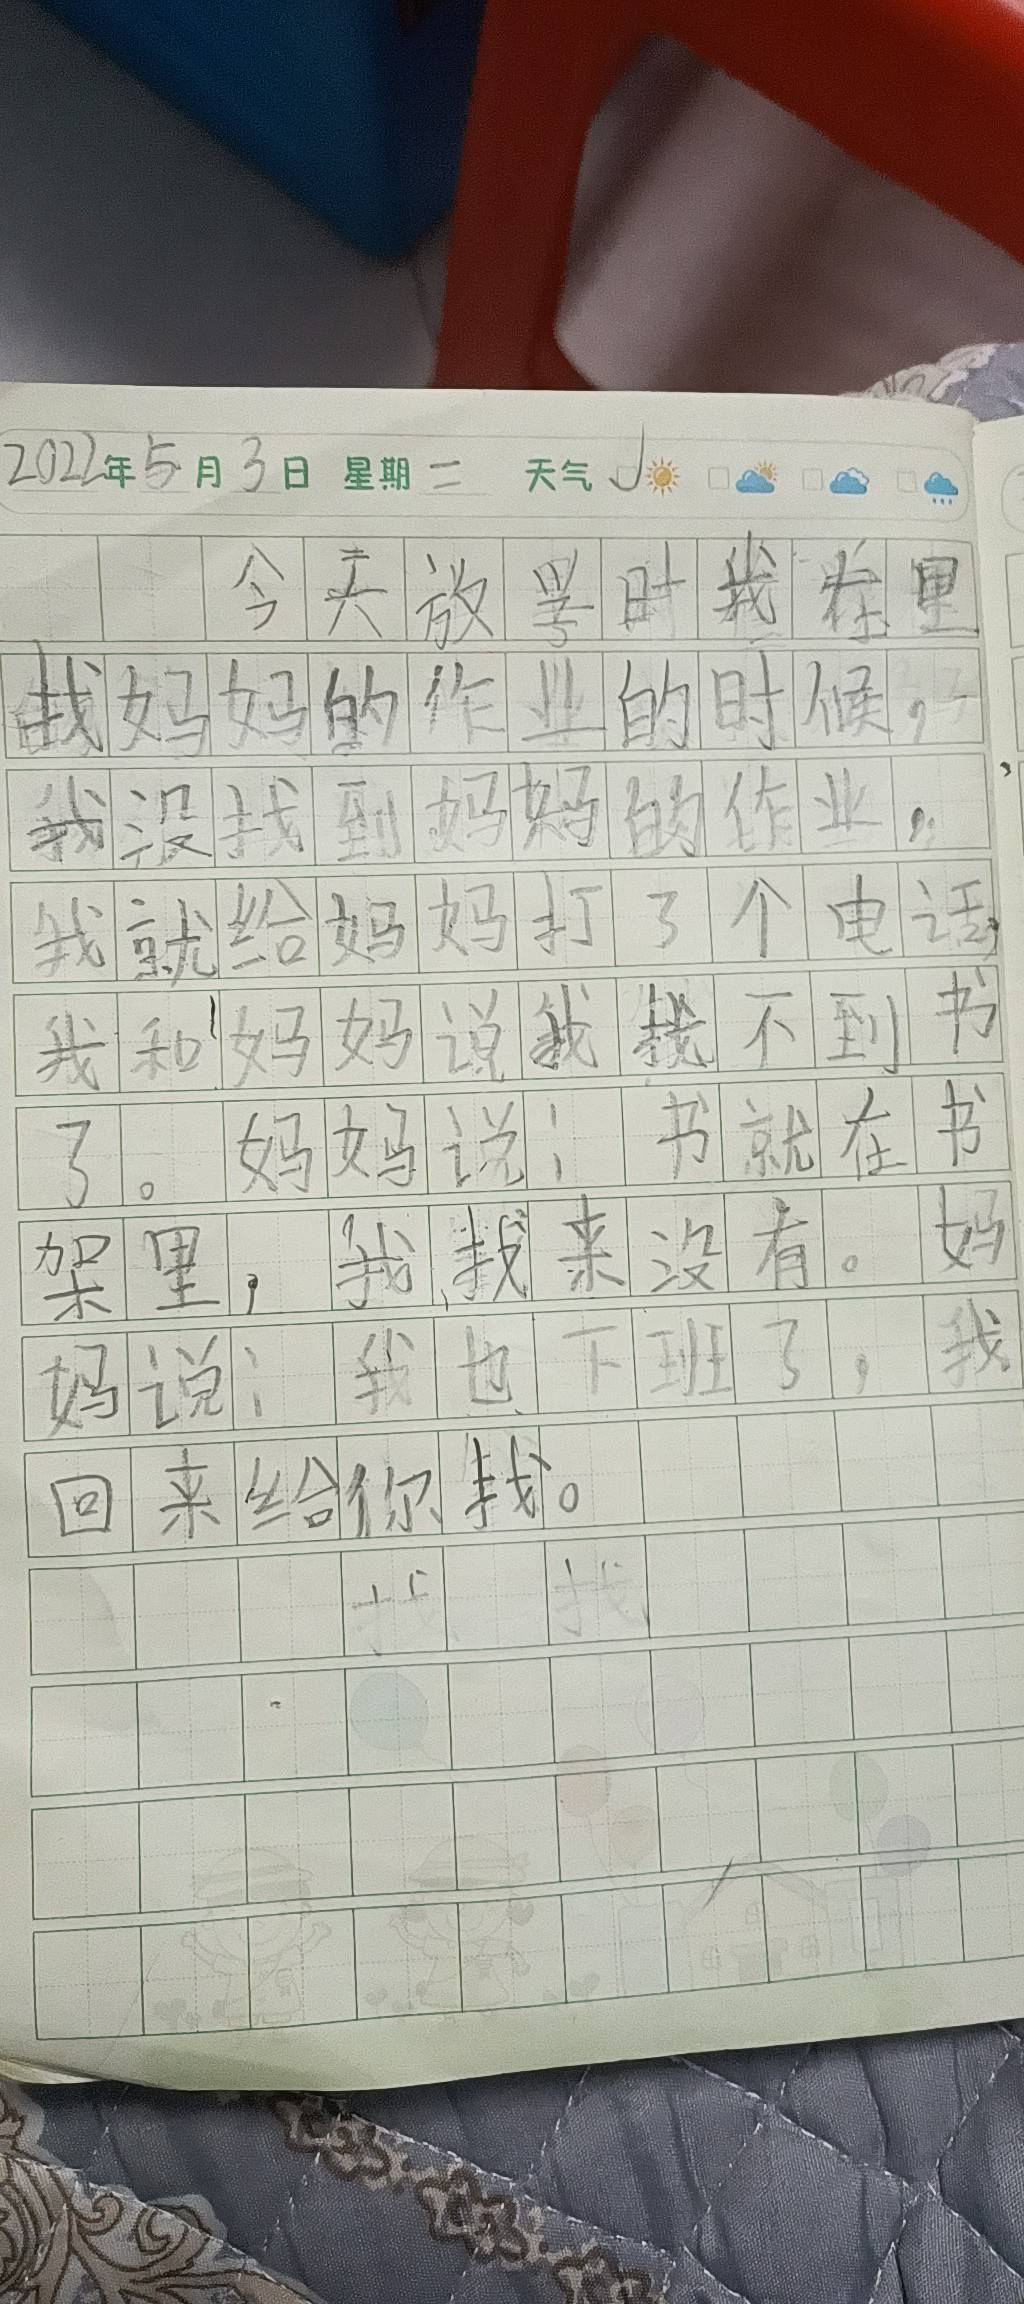 2022年5月3日 星期二 天气
今天放学时我在里
找妈妈的作业的时候，
我没找到妈妈的作业，
我就给妈妈打了个电话，
我和妈妈说我找不到书
了。妈妈说：书就在书
架里，我找来没有。妈
妈说：我也下班了，我
回来给你找。
找 找